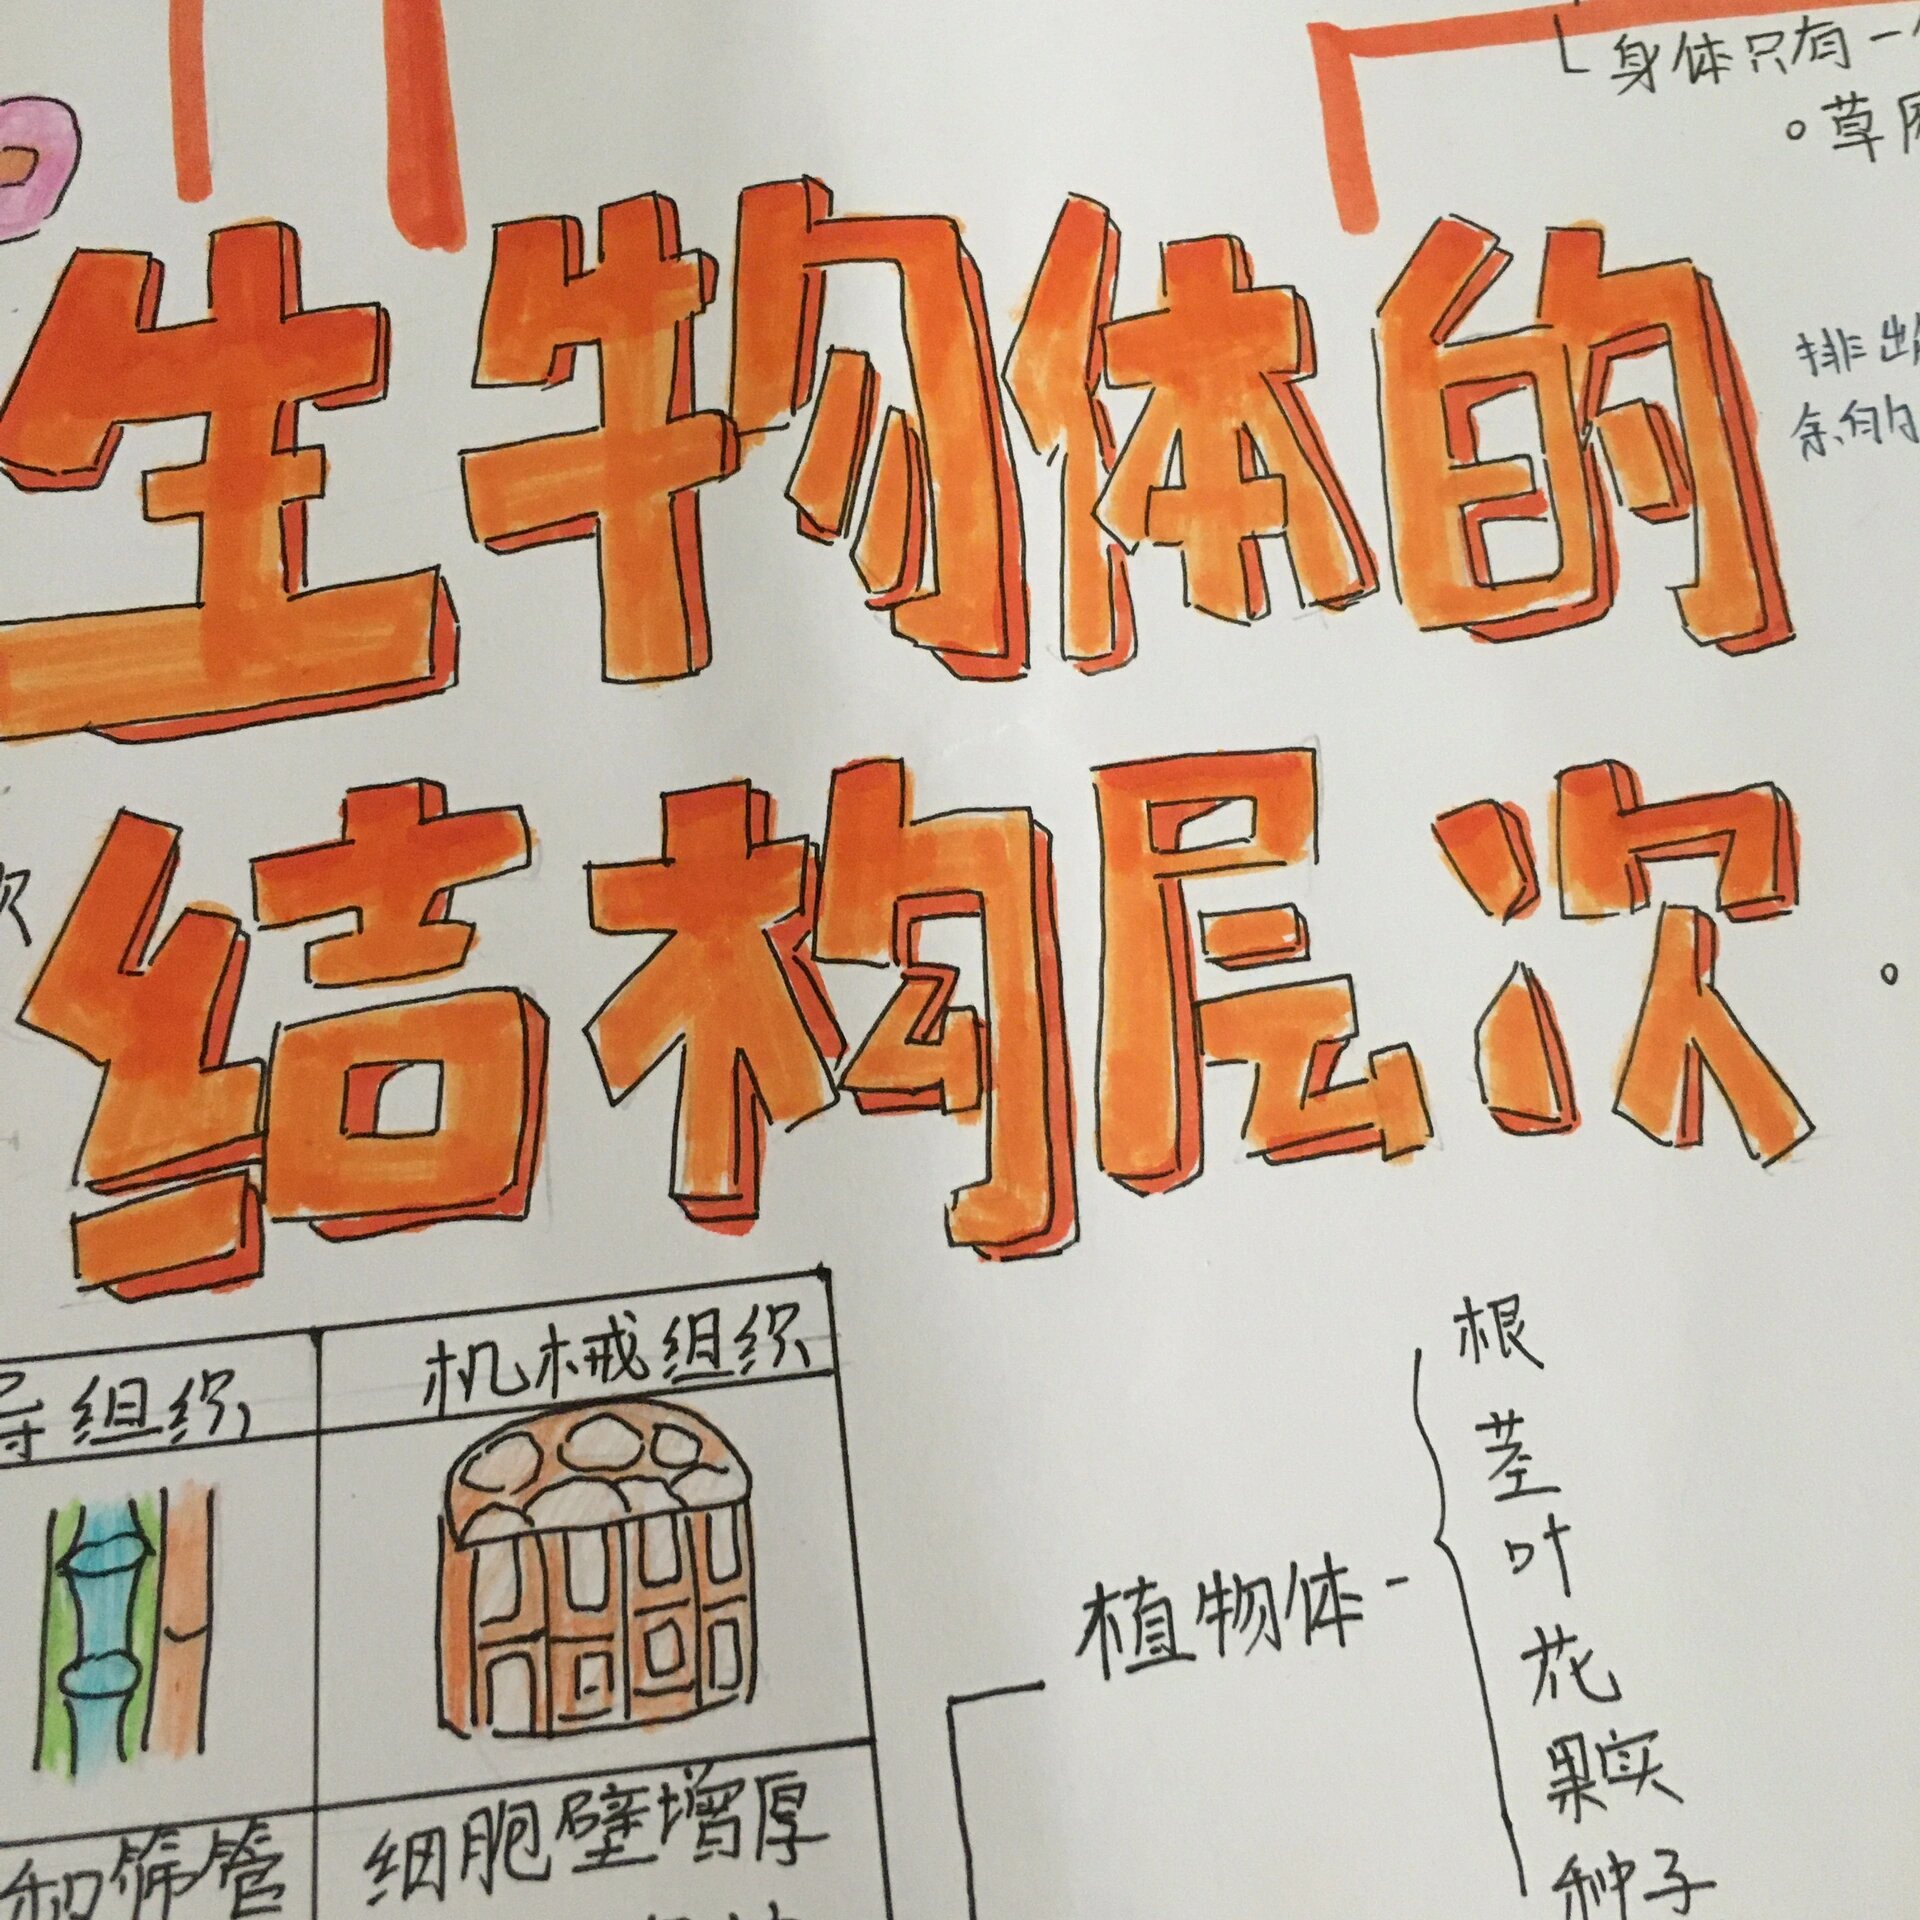 身体只有一
草
排出
余的
生物体的
结构层次
组织
机械组织
和筛管
细胞壁增厚
植物体
根
茎
叶
花
果实
种子